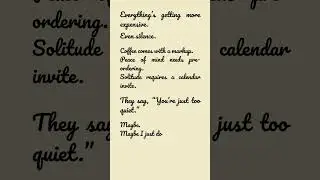 Everything's getting more
expensive.
Even silence.
Coffee comes with a markup.
Peace of mind needs pre-
ordering.
Solitude requires a calendar
invite.
They say, "You're just too
quiet."
Maybe.
Maybe I just do
Solitude
calendar
invite.
They say
st too
quiet."